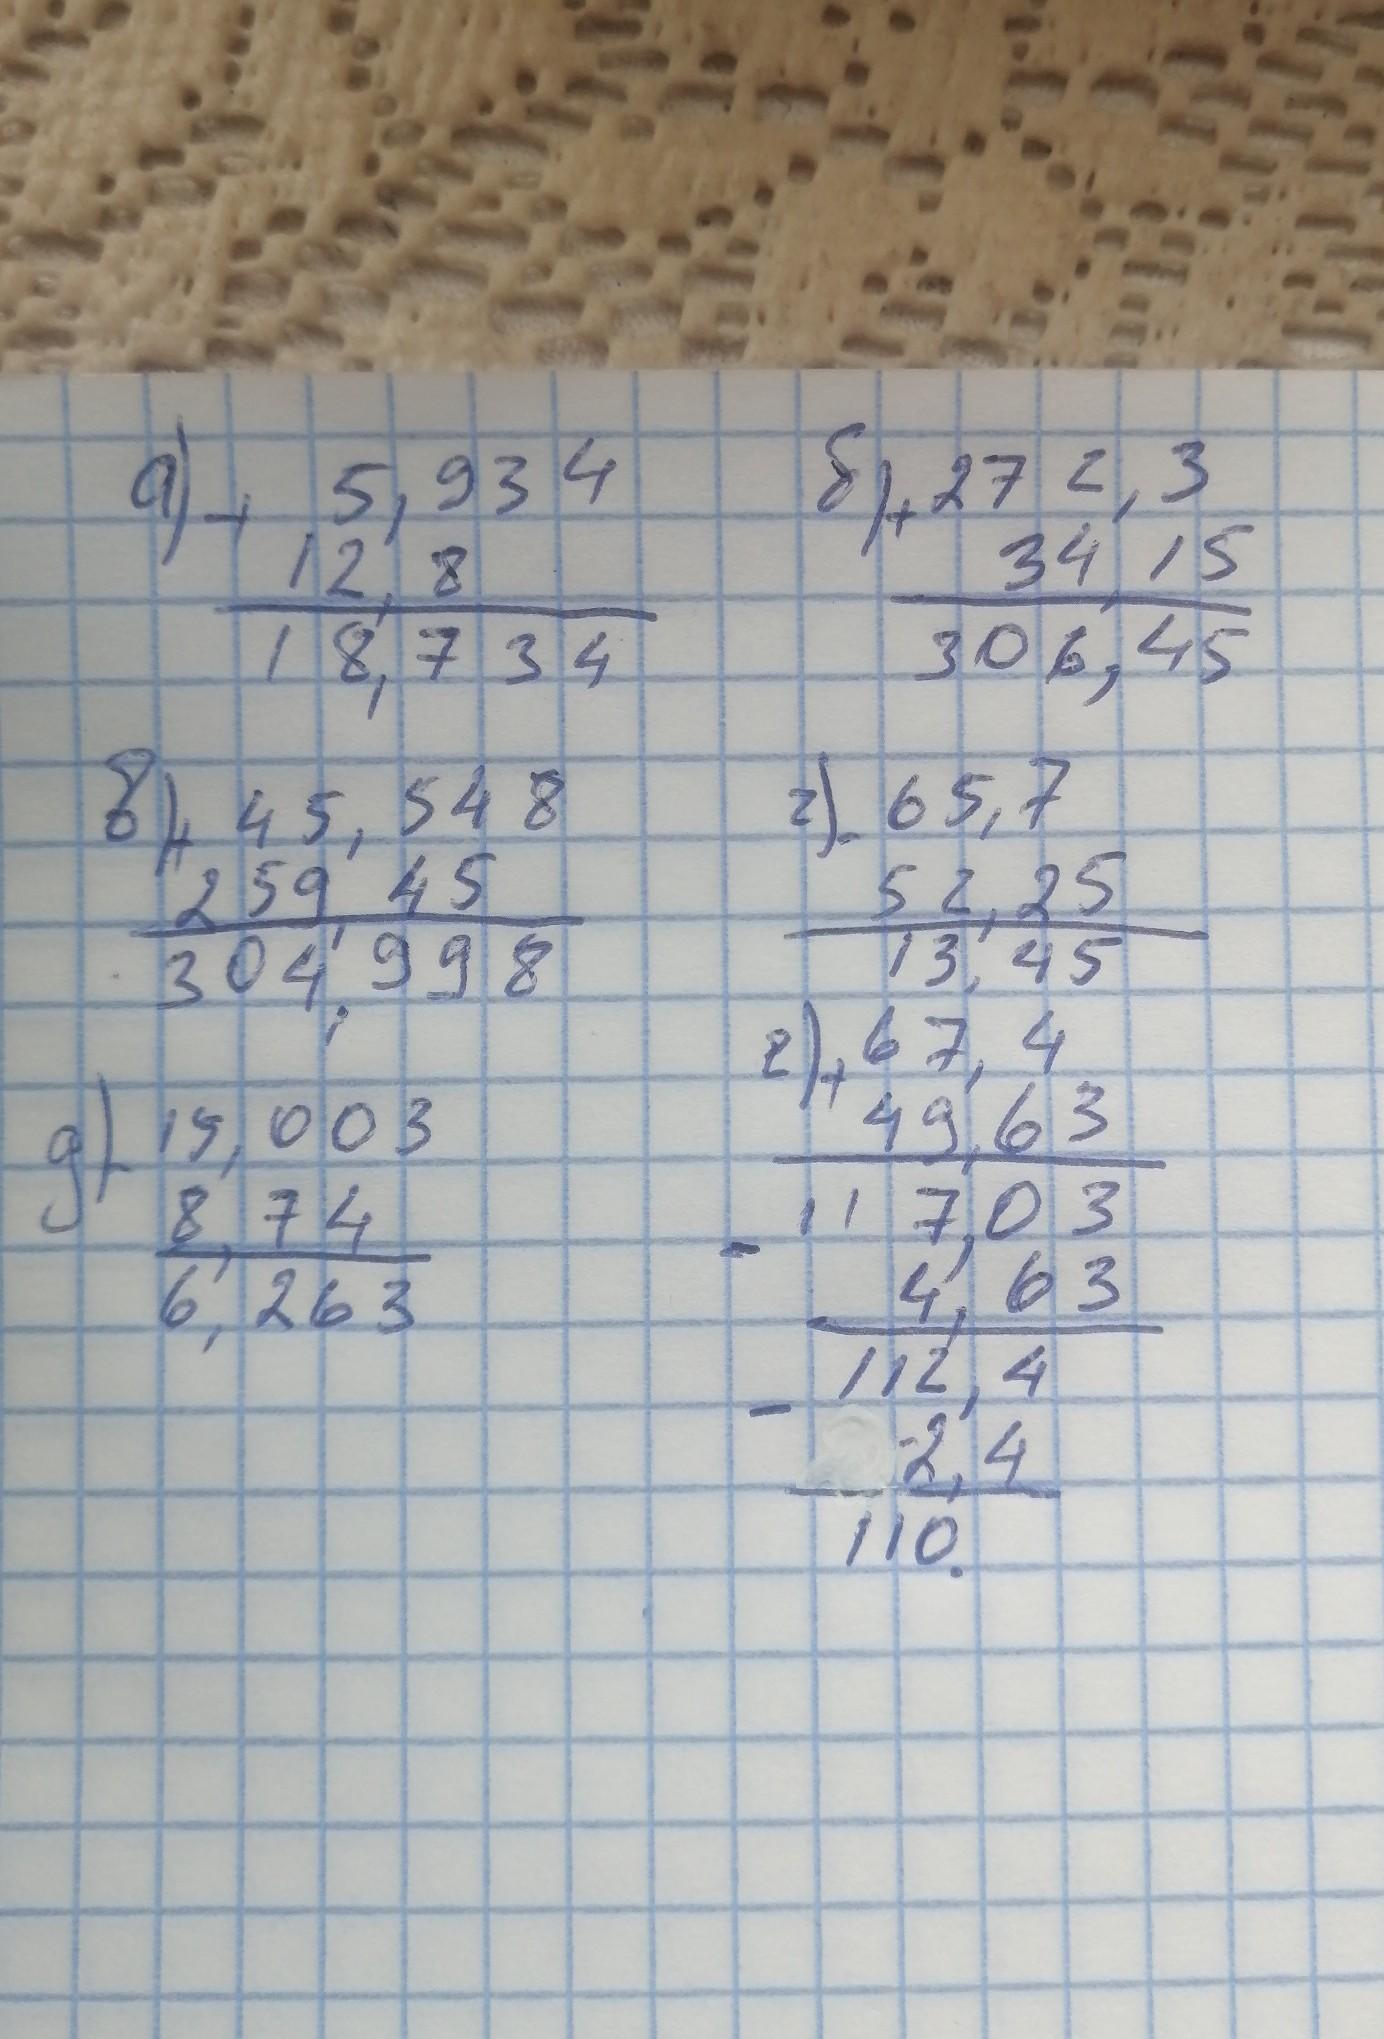 а) + 5,934
12,8
18,734
б) + 272,3
34,15
306,45
в) + 45,548
259,45
304,998
г) - 65,7
52,25
13,45
д) - 15,003
8,74
6,263
е) + 67,4
49,63
117,03
- 4,63
112,4
- 2,4
110.